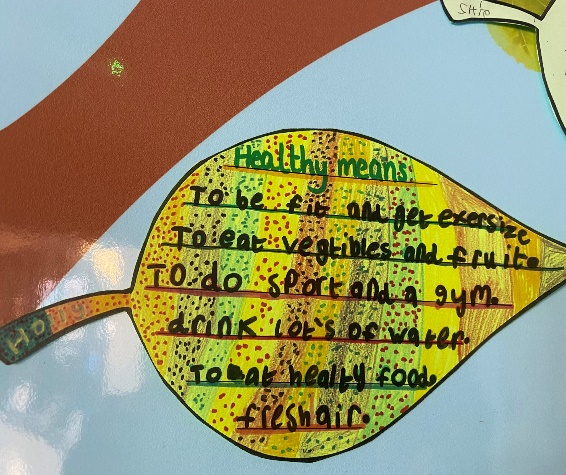 Healthy means
To be fit and get exersize
To eat vegtibles and fruite
TO do sport and a gym.
drink lot's of water.
To eat healty food.
fresh air.
Holly